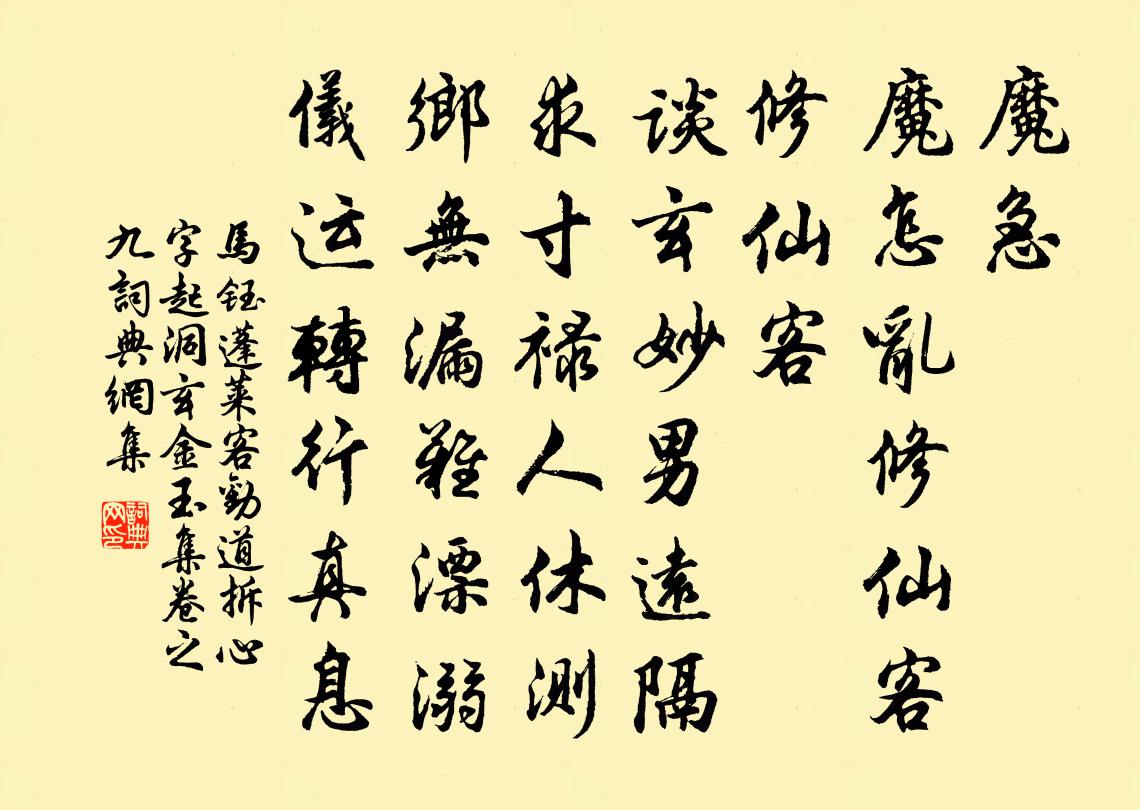 魔急
魔怎亂修仙客
修仙客
談玄妙男遠隔
求寸祿人休測
鄉無漏難漂溺
儀运轉行真息
馬鈺蓬萊客勸道拆心
字起洞玄金玉集卷之
九詞典網集
詞典
网印